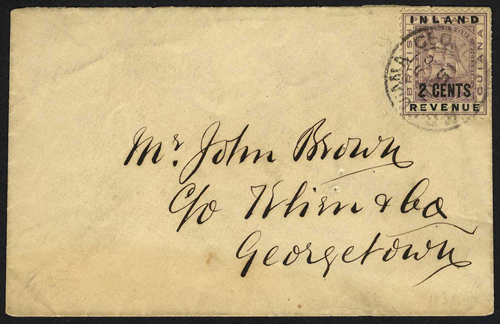 INLAND
BRITISH
GUIANA
2 CENTS
REVENUE
Mr John Brown
C/o Klien & Co
Georgetown